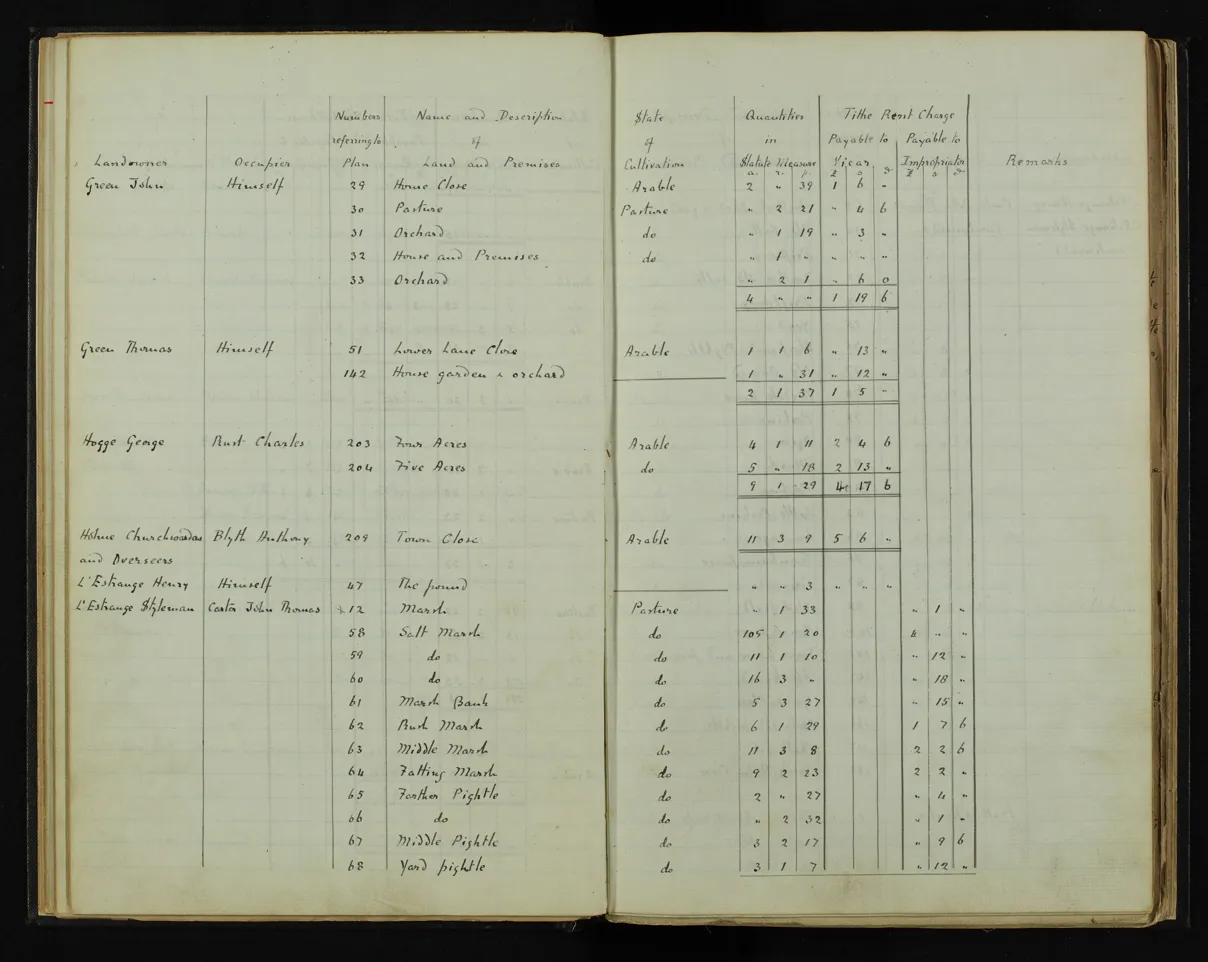 Numbers Name and Description State Quantities Tithe Rent Charge
referring to of of in Payable to Payable to
Landowner Occupier Plan Land and Premises Cultivation Statute Measure Vicar Impropriator Remarks
a. r. p. £ s d £ s d
Green John Himself 29 Home Close Arable 2 " 39 1 6 "
30 Pasture Pasture " 2 21 " 4 6
31 Orchard do " 1 19 " 3 "
32 House and Premises do " 1 " " " "
33 Orchard " 2 1 " 6 0
4 " " 1 19 6
Green Thomas Himself 51 Lower Lane Close Arable 1 1 6 " 13 "
142 House garden & orchard 1 " 31 " 12 "
2 1 37 1 5 "
Hogge George Rust Charles 203 Four Acres Arable 4 1 11 2 4 6
204 Five Acres do 5 " 18 2 13 "
9 1 29 4 17 6
Holme Churchwardens Blyth Anthony 209 Town Close Arable 11 3 9 5 6 "
and Overseers
L'Estrange Henry Himself 47 The pound " " 3 " " "
L'Estrange Styleman Castor John Thomas 12 Marsh Pasture " 1 33 " 1 "
58 Salt Marsh do 105 1 20 4 " "
59 do do 11 1 10 " 12 "
60 do do 16 3 " " 18 "
61 Marsh Bank do 5 3 27 " 15 "
62 Rush Marsh do 6 1 29 1 7 6
63 Middle Marsh do 11 3 8 2 2 6
64 Fatting Marsh do 9 2 23 2 2 "
65 Farther Pightle do 2 " 27 " 4 "
66 do do " 2 32 " 1 "
67 Middle Pightle do 3 2 17 " 9 6
68 Yard pightle do 3 1 7 " 12 "